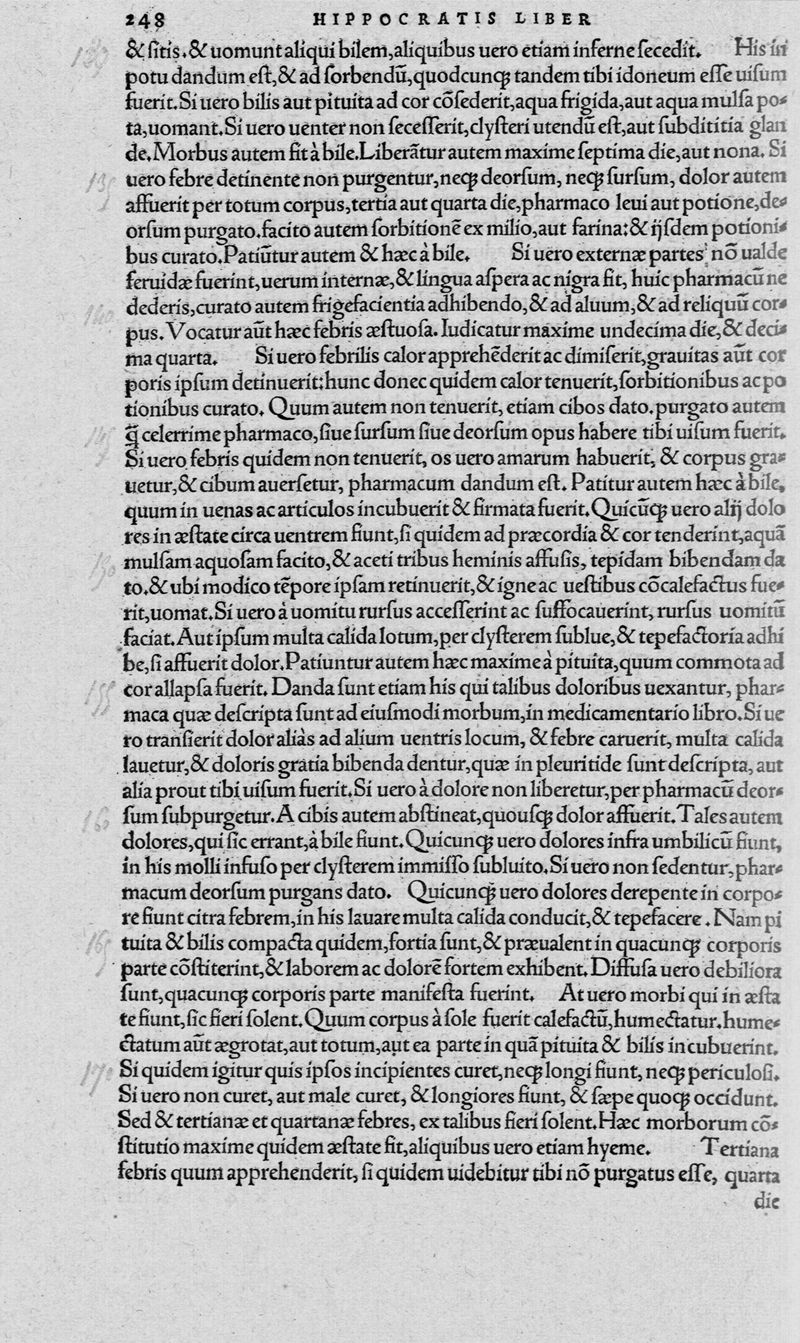 248 HIPPOCRATIS LIBER
& ſitis. & uomunt aliqui bilem, aliquibus uero etiam inferne ſecedit. His in
potu dandum eſt, & ad ſorbendū, quodcunq́ꝫ tandem tibi idoneum eſſe uiſum
fuerit. Si uero bilis aut pituita ad cor cōſederit, aqua frigida, aut aqua mulſa po⸗
ta, uomant. Si uero uenter non ſeceſſerit, clyſteri utendū eſt, aut ſubdititia glan
de. Morbus autem fit à bile. Liberātur autem maxime ſeptima die, aut nona. Si
uero febre detinente non purgentur, neqꝫ deorſum, neqꝫ ſurſum, dolor autem
affuerit per totum corpus, tertia aut quarta die, pharmaco leui aut potione, de⸗
orſum purgato. facito autem ſorbitionē ex milio, aut farina: & ijſdem potioni⸗
bus curato. Patiūtur autem & hæc à bile. Si uero externæ partes nō ualde
feruidæ fuerint, uerum internæ, & lingua aſpera ac nigra fit, huic pharmacū ne
dederis, curato autem frigefacientia adhibendo, & ad aluum, & ad reliquū cor⸗
pus. Vocatur aūt hæc febris æſtuoſa. Iudicatur maxime undecima die, & deci⸗
ma quarta. Si uero febrilis calor apprehēderit ac dimiſerit, grauitas aūt cor
poris ipſum detinuerit: hunc donec quidem calor tenuerit, ſorbitionibus ac po
tionibus curato. Quum autem non tenuerit, etiam cibos dato. purgato autem
q̄ celerrime pharmaco, ſiue ſurſum ſiue deorſum opus habere tibi uiſum fuerit.
Si uero febris quidem non tenuerit, os uero amarum habuerit, & corpus gra⸗
uetur, & cibum auerſetur, pharmacum dandum eſt. Patitur autem hæc à bile,
quum in uenas ac articulos incubuerit & firmata fuerit. Quicūqꝫ uero alij dolo
res in æſtate circa uentrem fiunt, ſi quidem ad præcordia & cor tenderint, aquā
mulſam aquoſam facito, & aceti tribus heminis affuſis, tepidam bibendam da
to. & ubi modico tēpore ipſam retinuerit, & igne ac ueſtibus cōcalefactus fue⸗
rit, uomat. Si uero à uomitu rurſus acceſſerint ac ſuffocauerint, rurſus uomitū
faciat. Aut ipſum multa calida lotum, per clyſterem ſublue, & tepefactoria adhi
be, ſi affuerit dolor. Patiuntur autem hæc maxime à pituita, quum commota ad
cor allapſa fuerit. Danda ſunt etiam his qui talibus doloribus uexantur, phar⸗
maca quæ deſcripta ſunt ad eiuſmodi morbum, in medicamentario libro. Si ue
ro tranſierit dolor aliàs ad alium uentris locum, & febre caruerit, multa calida
lauetur, & doloris gratia bibenda dentur, quæ in pleuritide ſunt deſcripta, aut
alia prout tibi uiſum fuerit. Si uero à dolore non liberetur, per pharmacū deor⸗
ſum ſubpurgetur. A cibis autem abſtineat, quouſqꝫ dolor affuerit. Tales autem
dolores, qui ſic errant, à bile fiunt. Quicunqꝫ uero dolores infra umbilicū fiunt,
in his molli infuſo per clyſterem immiſſo ſubluito. Si uero non ſedentur, phar⸗
macum deorſum purgans dato. Quicunqꝫ uero dolores derepente in corpo⸗
re fiunt citra febrem, in his lauare multa calida conducit, & tepefacere. Nam pi
tuita & bilis compacta quidem, fortia ſunt, & præualent in quacunqꝫ corporis
parte cōſtiterint, & laborem ac dolorē fortem exhibent. Diffuſa uero debiliora
ſunt, quacunqꝫ corporis parte manifeſta fuerint. At uero morbi qui in æſta
te fiunt, ſic fieri ſolent. Quum corpus à ſole fuerit calefactū, humectatur. hume⸗
ctatum aūt ægrotat, aut totum, aut ea parte in quā pituita & bilis incubuerint.
Si quidem igitur quis ipſos incipientes curet, neqꝫ longi fiunt, neqꝫ periculoſi.
Si uero non curet, aut male curet, & longiores fiunt, & ſæpe quoqꝫ occidunt.
Sed & tertianæ et quartanæ febres, ex talibus fieri ſolent. Hæc morborum cō⸗
ſtitutio maxime quidem æſtate fit, aliquibus uero etiam hyeme. Tertiana
febris quum apprehenderit, ſi quidem uidebitur tibi nō purgatus eſſe, quarta
die